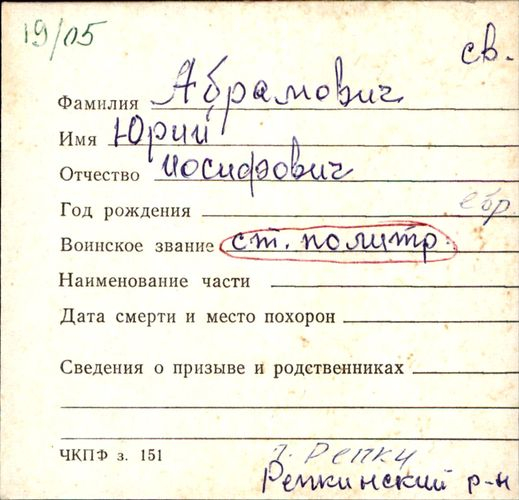 19/05
св.
Фамилия Абрамович
Имя Юрий
Отчество Иосифович
Год рождения евр.
Воинское звание ст. политр.
Наименование части
Дата смерти и место похорон
Сведения о призыве и родственниках
ЧКПФ з. 151
г. Репки
Репкинский р-н